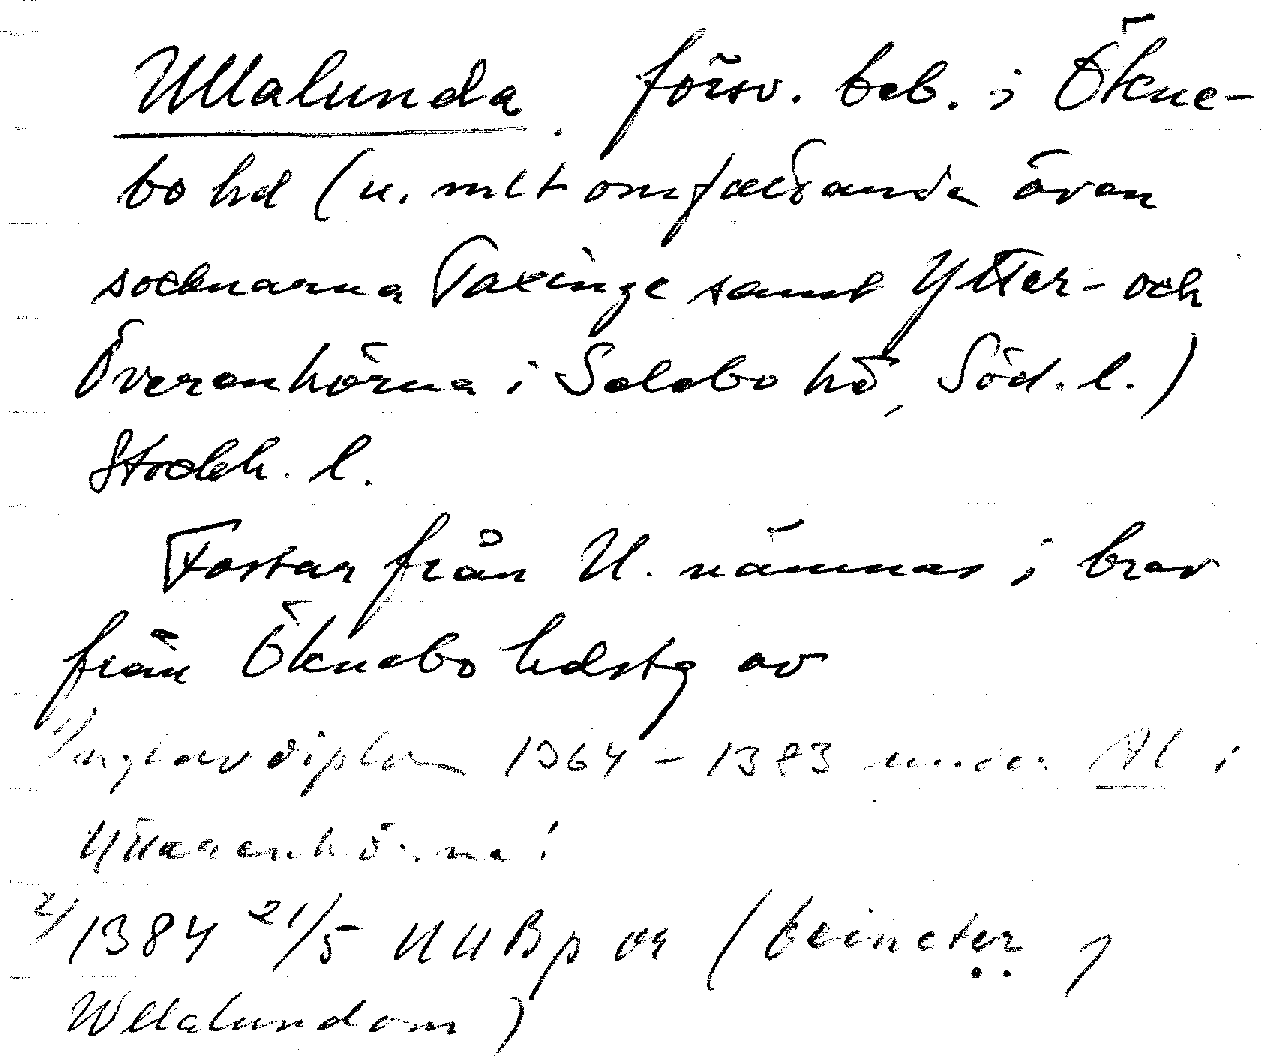 Ullalunda. försv. beb. i Ökne-
bo hd (u. mlt omfattande även
socknarna Taxinge samt Ytter- och
Överenhörna i Selebo hd, Söd. l.)
Stockh. l.
Fastar från U. nämnas i brev
från Öknebo hdstg av
1) 1364 - 1383 under Al i
Ytterenhörna!
2) 1384 21/5 UUB p or (beincter j
Wllalundom)